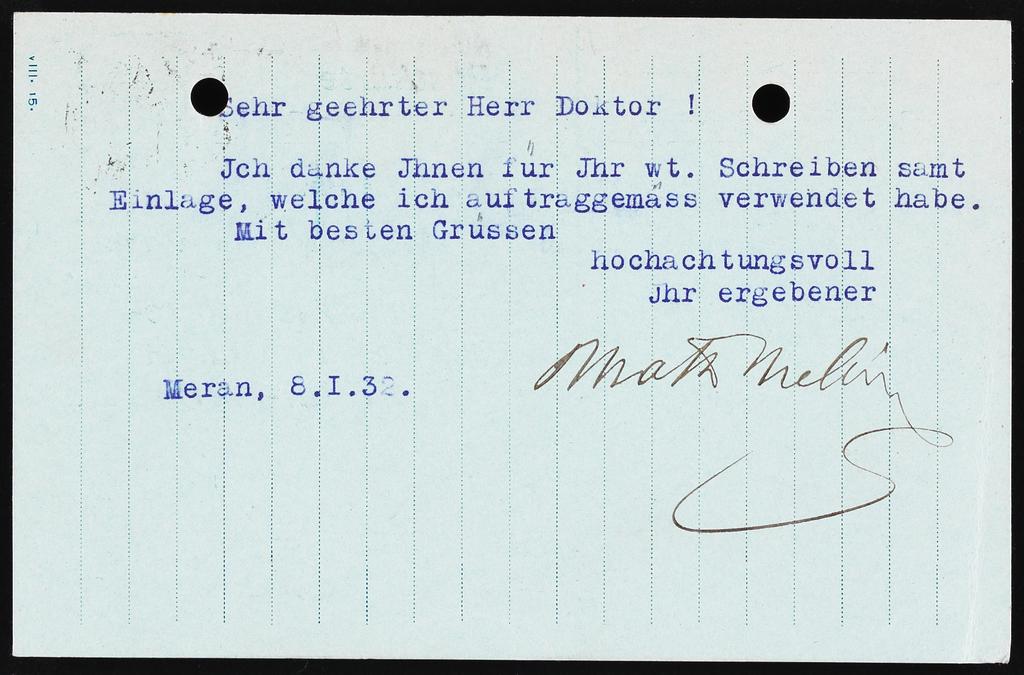 VIII. 15.
Sehr geehrter Herr Doktor !
Jch danke Jhnen für Jhr wt. Schreiben samt
Einlage, welche ich auftraggemäss verwendet habe.
Mit besten Grüssen
hochachtungsvoll
Jhr ergebener
Meran, 8.I.32.